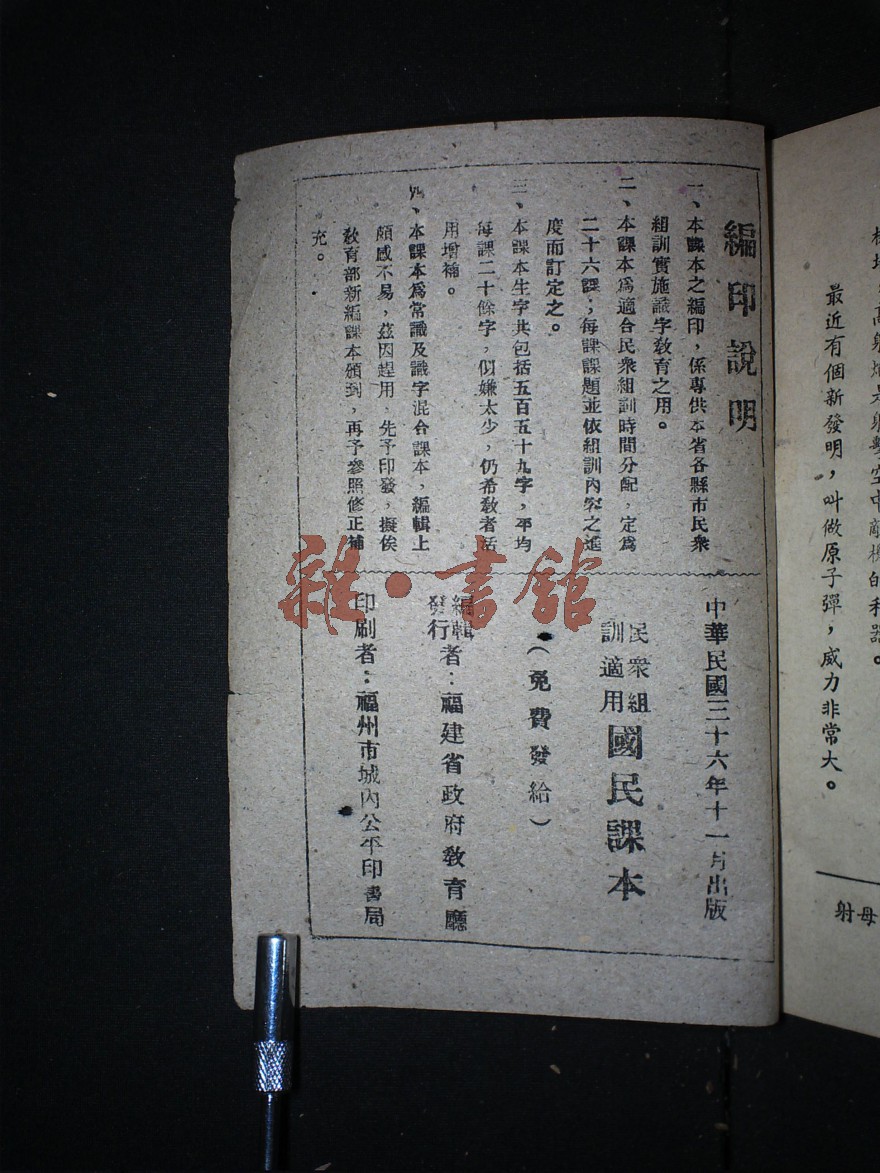 編印說明
一、本課本之編印，係專供本省各縣市民衆
組訓實施識字敎育之用。
二、本課本爲適合民衆組訓時間分配，定爲
二十六課；每課課題並依組訓內容之進
度而訂定之。
三、本課本生字共包括五百五十九字，平均
每課二十餘字，似嫌太少，仍希敎者活
用增補。
四、本課本爲常識及識字混合課本，編輯上
頗感不易，茲因趕用，先予印發，擬俟
敎育部新編課本頒到，再予參照修正補
充。
中華民國三十六年十一月出版
民衆組
訓適用
國民課本
（免費發給）
編輯
發行
者：福建省政府敎育廳
印刷者：福州市城內公平印書局
雜·書館
高射炮是射擊空中敵機的利器。
最近有個新發明，叫做原子彈，威力非常大。
射 母